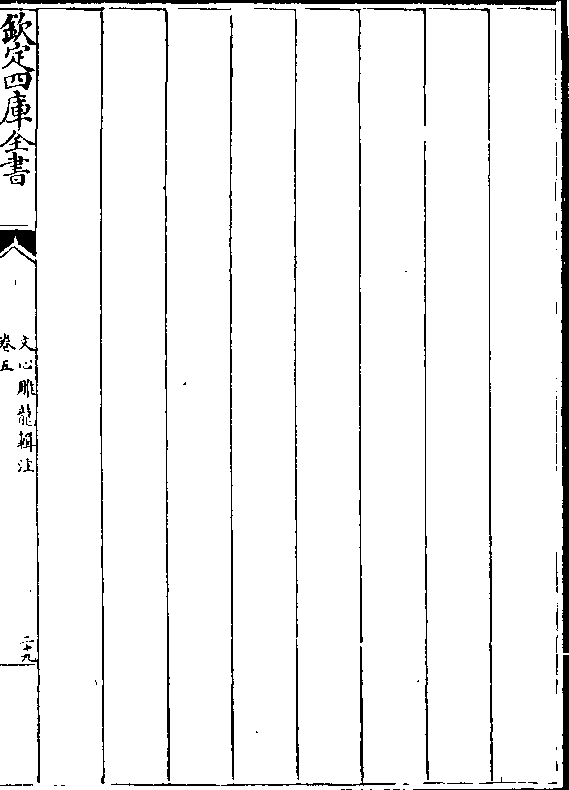 欽定四庫全書
文心雕龍輯注
卷五
二十九